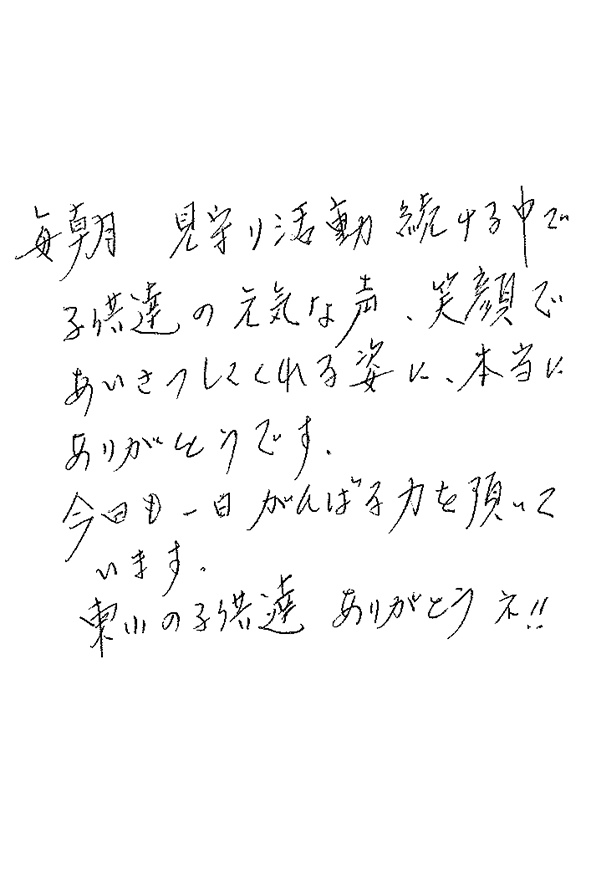 毎朝 見守り活動 続ける中で
子供達の元気な声、笑顔で
あいさつしてくれる姿に、本当に
ありがとうです.
今日も一日がんばる力を頂いて
います.
東山の子供達 ありがとうネ!!